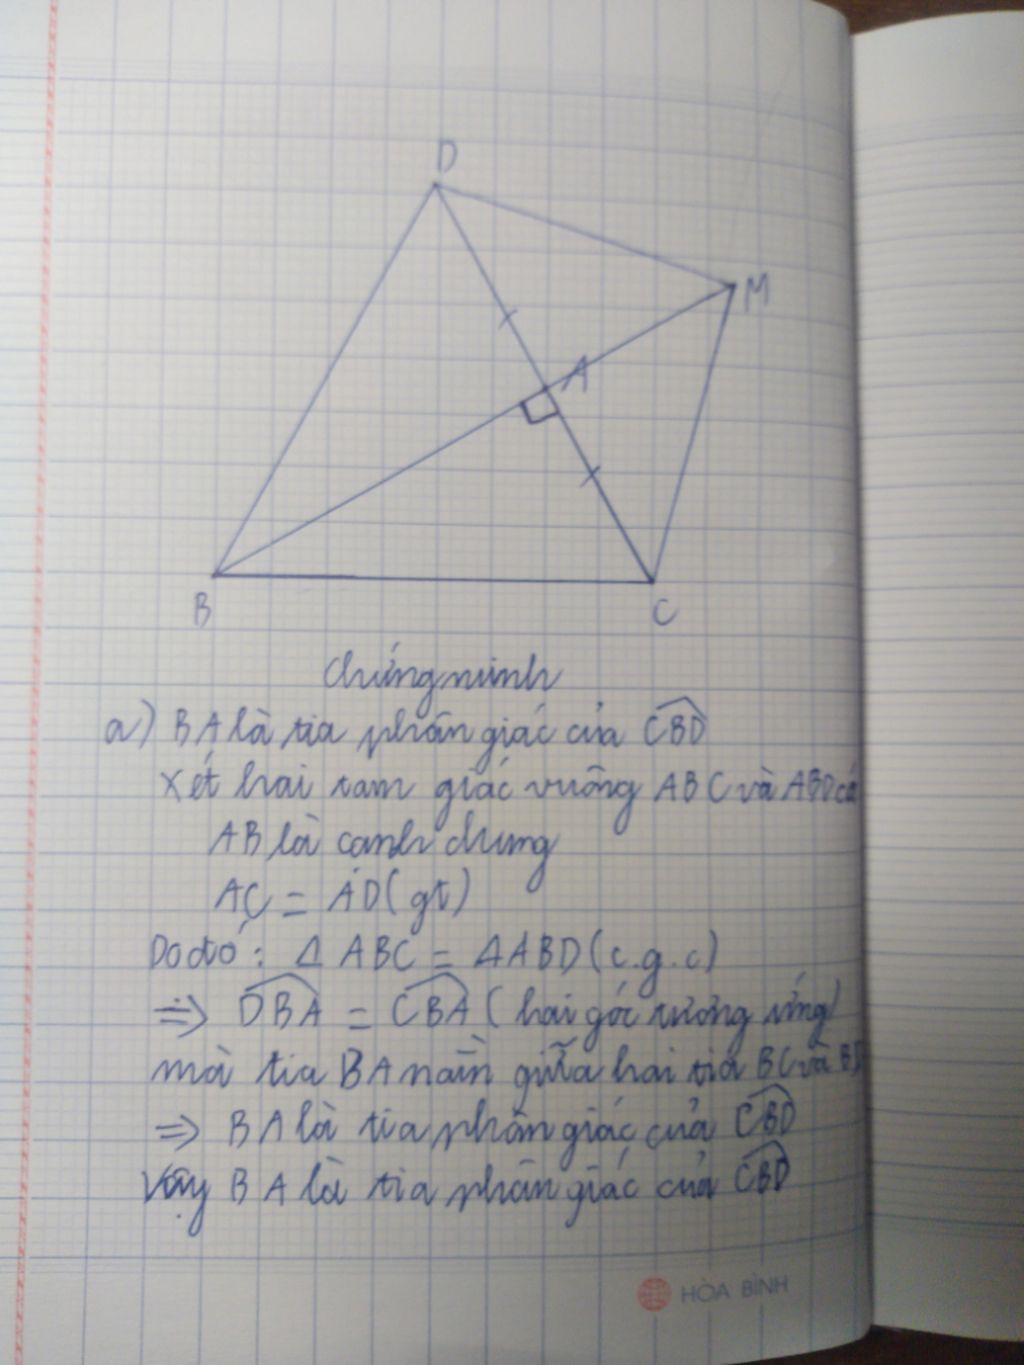 D
M
A
B
C
Chứng minh
a) BA là tia phân giác của CBD
Xét hai tam giác vuông ABC và ABD có
AB là cạnh chung
AC = AD (gt)
Do đó: Δ ABC = ΔABD (c.g.c)
=> DBA = CBA (hai góc tương ứng)
mà tia BA nằm giữa hai tia BC và BD
=> BA là tia phân giác của CBD
Vậy BA là tia phân giác của CBD
HÒA BÌNH